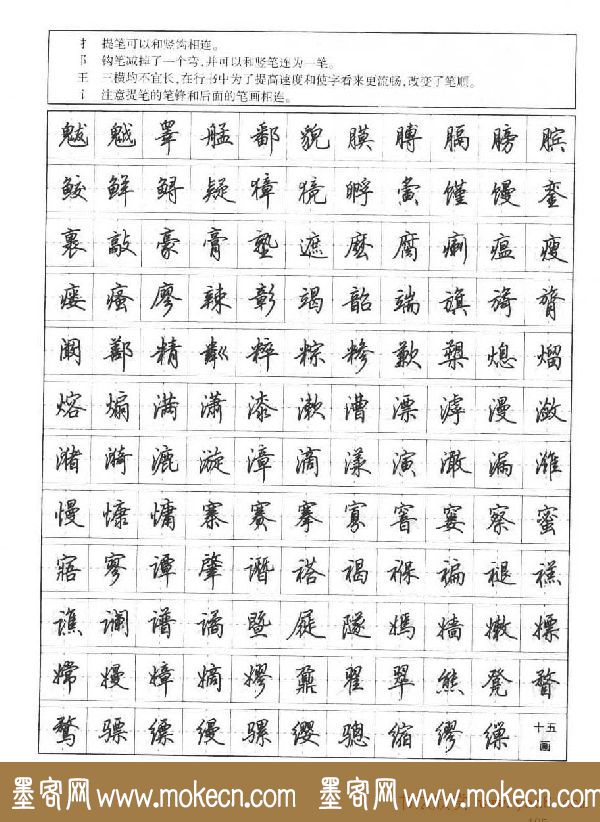 扌 提笔可以和竖钩相连。
阝 钩笔减掉了一个弯,并可以和竖笔连为一笔。
王 三横均不宜长,在行书中为了提高速度和使字看来更流畅,改变了笔顺。
讠 注意提笔的笔锋和后面的笔画相连。
魃 魆 睾 艋 鄱 貌 膜 膊 膈 膀 膑
鲛 鲜 鲟 疑 獐 獍 孵 雒 馑 馒 銮
裹 敲 豪 膏 塾 遮 麽 腐 瘌 瘟 瘦
瘘 瘙 廖 辣 彰 竭 韶 端 旗 旖 膂
阚 鄯 精 粼 粹 粽 糁 歉 槊 熄 熘
熔 煽 满 潇 漆 漱 漕 漂 滹 漫 潋
潴 漪 漉 漩 漳 滴 漾 演 澉 漏 潍
慢 慷 慵 寨 赛 搴 寡 窨 窭 察 蜜
寤 寥 谭 肇 谮 褡 褐 褓 褊 褪 禚
谯 谰 谱 谲 暨 屣 隧 嫣 嫱 嫩 嫖
嫦 嫚 嫜 嫡 嫪 鼐 翟 翠 熊 凳 瞀
鹜 骠 缥 缦 骡 缨 骢 缩 缪 缫 十五画
墨客网 www.mokecn.com 墨客网 www.mokecn.com